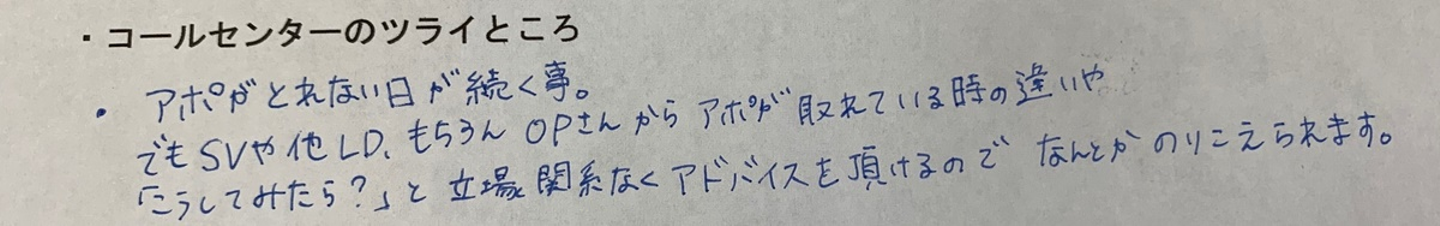 ・コールセンターのツライところ
・アポがとれない日が続く事。
でもSVや他LD、もちろんOPさんからアポが取れている時の違いや
「こうしてみたら?」と立場関係なくアドバイスを頂けるのでなんとかのりこえられます。